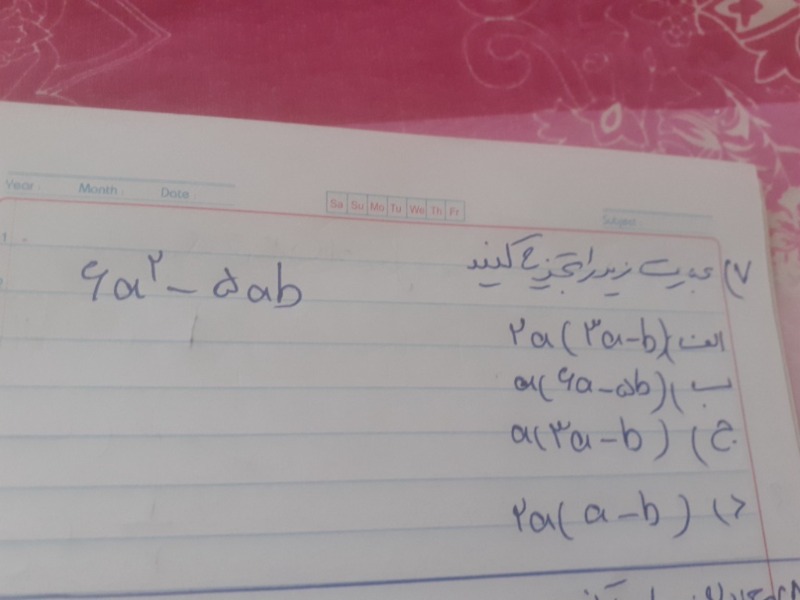 Year: Month: Date
Sa Su Mo Tu We Th Fr
Subject
۷) عبارت زیر را تجزیه کنید
۶a۲ – ۵ab
الف) ۲a(۳a–b)
ب) a(۶a–۵b)
ج) a(۳a–b)
د) ۲a(a–b)